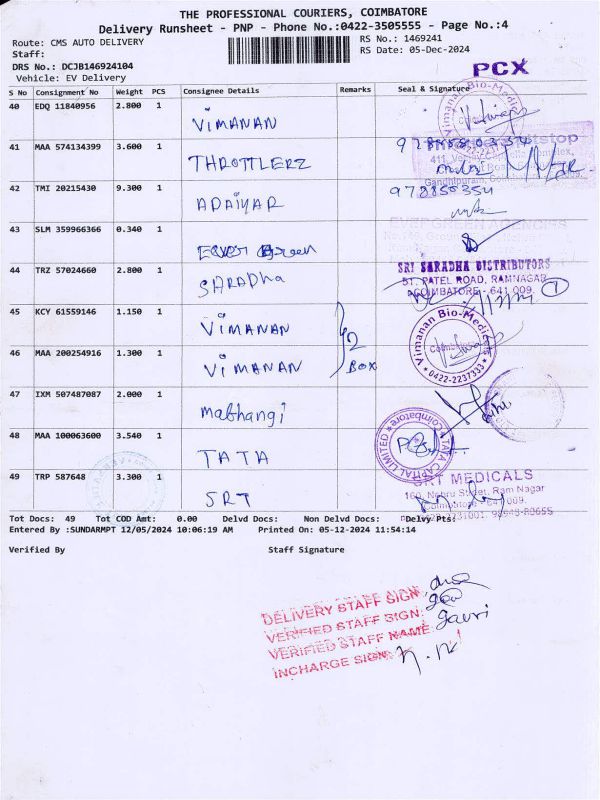 THE PROFESSIONAL COURIERS, COIMBATORE
Delivery Runsheet - PNP - Phone No.:0422-3505555 - Page No.:4
Route: CMS AUTO DELIVERY
RS No.: 1469241
Staff:
RS Date: 05-Dec-2024
DRS No.: DCJB146924104
Vehicle: EV Delivery
PCX
S No Consignment No Weight PCS Consignee Details Remarks Seal & Signature
40 EDQ 11840956 2.800 1 VIMANAN
41 MAA 574134399 3.600 1 THROTTLERZ
42 TMI 20215430 9.300 1 ADAIYAR
9788503 54
43 SLM 359966366 0.340 1 Ever Green
EVERGREEN AGENCIES
44 TRZ 57024660 2.800 1 SARADHA
SRI SARADHA DISTRIBUTORS
51, PATEL ROAD, RAMNAGAR,
COIMBATORE - 641 009.
45 KCY 61559146 1.150 1 VIMANAN
46 MAA 200254916 1.300 1 VIMANAN
2 BOX
Vimanan Bio-Medicals
* 0422-2237333 *
47 IXM 507487087 2.000 1 Mathangi
48 MAA 100063600 3.540 1 TATA
TATA CAPITAL LIMITED * Coimbatore *
49 TRP 587648 3.300 1 SRT
SRT MEDICALS
160, Nehru Street, Ram Nagar
Coimbatore - 641 009.
Tot Docs: 49 Tot COD Amt: 0.00 Delvd Docs: Non Delvd Docs: Delvy Pts:
Entered By :SUNDARMPT 12/05/2024 10:06:19 AM Printed On: 05-12-2024 11:54:14
Verified By Staff Signature
DELIVERY STAFF SIGN:
VERIFIED STAFF SIGN:
VERIFIED STAFF NAME: Gauri
INCHARGE SIGN: